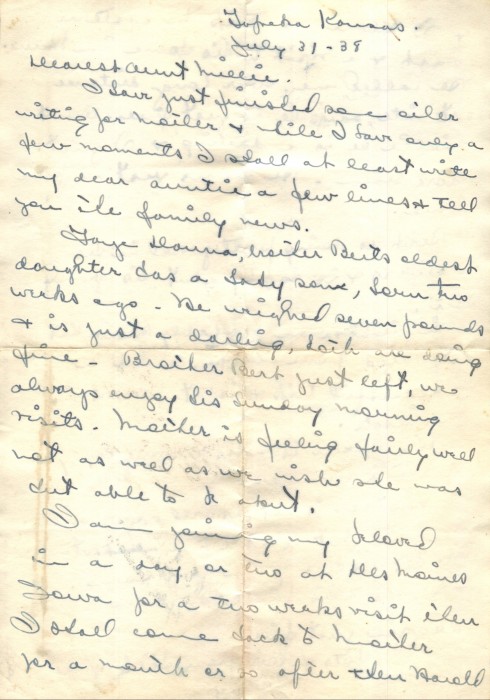 Topeka Kansas.
July 31-38
Dearest Aunt Millie.
I have just finished some other
writing for Mother & while I have only a
few moments I shall at least write
my dear auntie a few lines & tell
you the family news.
Faye Donna, brother Berts oldest
daughter has a baby son, born two
weeks ago - He weighed seven pounds
& is just a darling, both are doing
fine - Brother Bert just left, we
always enjoy his Sunday morning
visits. Mother is feeling fairly well
not as well as we wish she was
but able to be about.
I am joining my beloved
in a day or two at Des Moines
Iowa for a two weeks visit then
I shall come back to Mother
for a month or so after then Harold